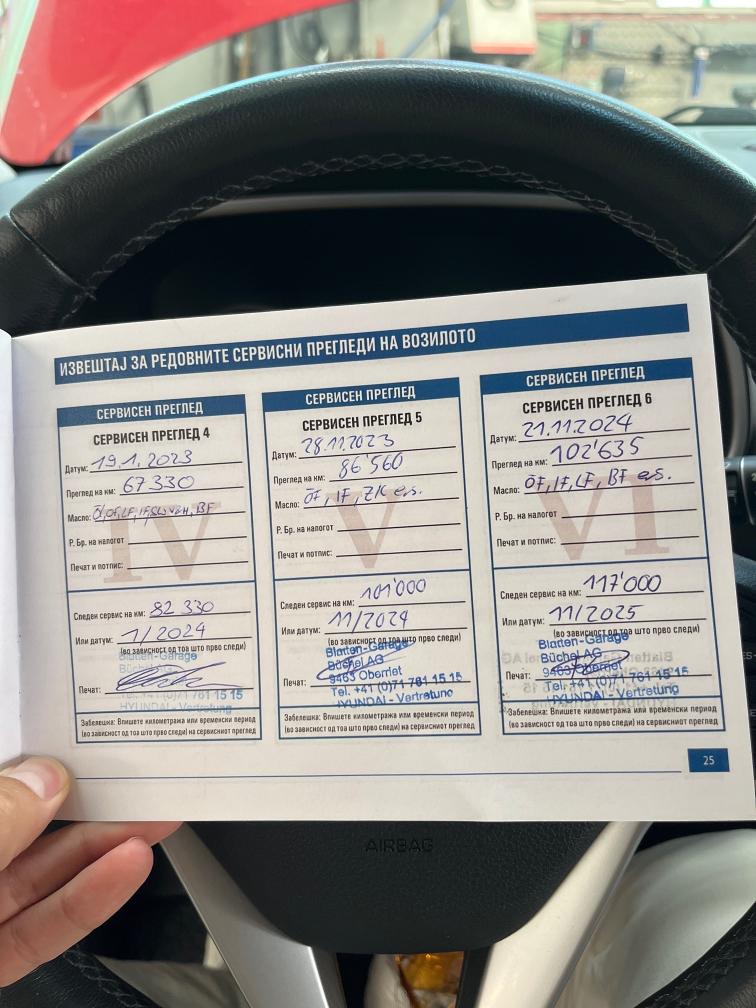 ИЗВЕШТАЈ ЗА РЕДОВНИТЕ СЕРВИСНИ ПРЕГЛЕДИ НА ВОЗИЛОТО
СЕРВИСЕН ПРЕГЛЕД
СЕРВИСЕН ПРЕГЛЕД 4
Датум: 19.1.2023
Преглед на км: 67 330
Масло: Öl, ÖF, LF, IF, BF
Р. Бр. на налогот
Печат и потпис:
Следен сервис на км: 82 330
Или датум: 1/2024
(во зависност од тоа што прво следи)
Blatten-Garage
Печат:
Tel. +41 (0)71 761 15 15
HYUNDAI - Vertretung
Забелешка: Впишете километража или временски период
(во зависност од тоа што прво следи) на сервисниот преглед
СЕРВИСЕН ПРЕГЛЕД
СЕРВИСЕН ПРЕГЛЕД 5
Датум: 28.11.2023
Преглед на км: 86'560
Масло: ÖF, IF, ZK e.s.
Р. Бр. на налогот
Печат и потпис:
V
Следен сервис на км: 101'000
Или датум: 11/2024
(во зависност од тоа што прво следи)
Blatten-Garage
Büchel AG
Печат: 9463 Oberriet
Tel. +41 (0)71 761 15 15
HYUNDAI - Vertretung
Забелешка: Впишете километража или временски период
(во зависност од тоа што прво следи) на сервисниот преглед
СЕРВИСЕН ПРЕГЛЕД
СЕРВИСЕН ПРЕГЛЕД 6
Датум: 21.11.2024
Преглед на км: 102'635
Масло: ÖF, IF, LF, BF e.s.
Р. Бр. на налогот
Печат и потпис:
VI
Следен сервис на км: 117'000
Или датум: 11/2025
(во зависност од тоа што прво следи)
Blatten-Garage
Büchel AG
Печат: 9463 Oberriet
Tel. +41 (0)71 761 15 15
HYUNDAI - Vertretung
Забелешка: Впишете километража или временски период
(во зависност од тоа што прво следи) на сервисниот преглед
IV
25
AIRBAG